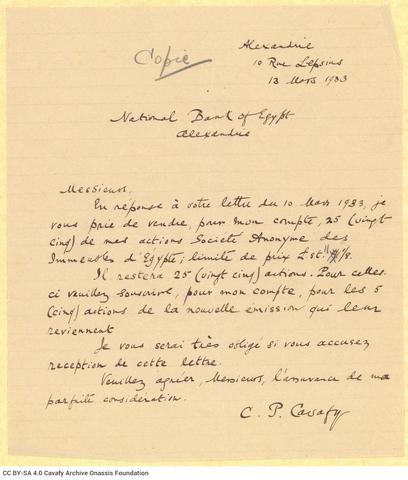 Copie
Alexandrie
10 Rue Lepsius
13 Mars 1933
National Bank of Egypt
Alexandrie
Messieurs,
En réponse à votre lettre du 10 Mars 1933, je
vous prie de vendre, pour mon compte, 25 (vingt
cinq) de mes actions Societé Anonyme des
Immeubles d'Égypte; limite de prix £st.
Il restera 25 (vingt cinq) actions. Pour celles-
ci veuillez souscrire, pour mon compte, pour les 5
(cinq) actions de la nouvelle emission qui leur
reviennent
Je vous serai très obligé si vous accusez
reception de cette lettre.
Veuillez agréer, Messieurs, l'assurance de ma
parfaite consideration.
C. P. Cavafy
CC BY-SA 4.0 Cavafy Archive Onassis Foundation